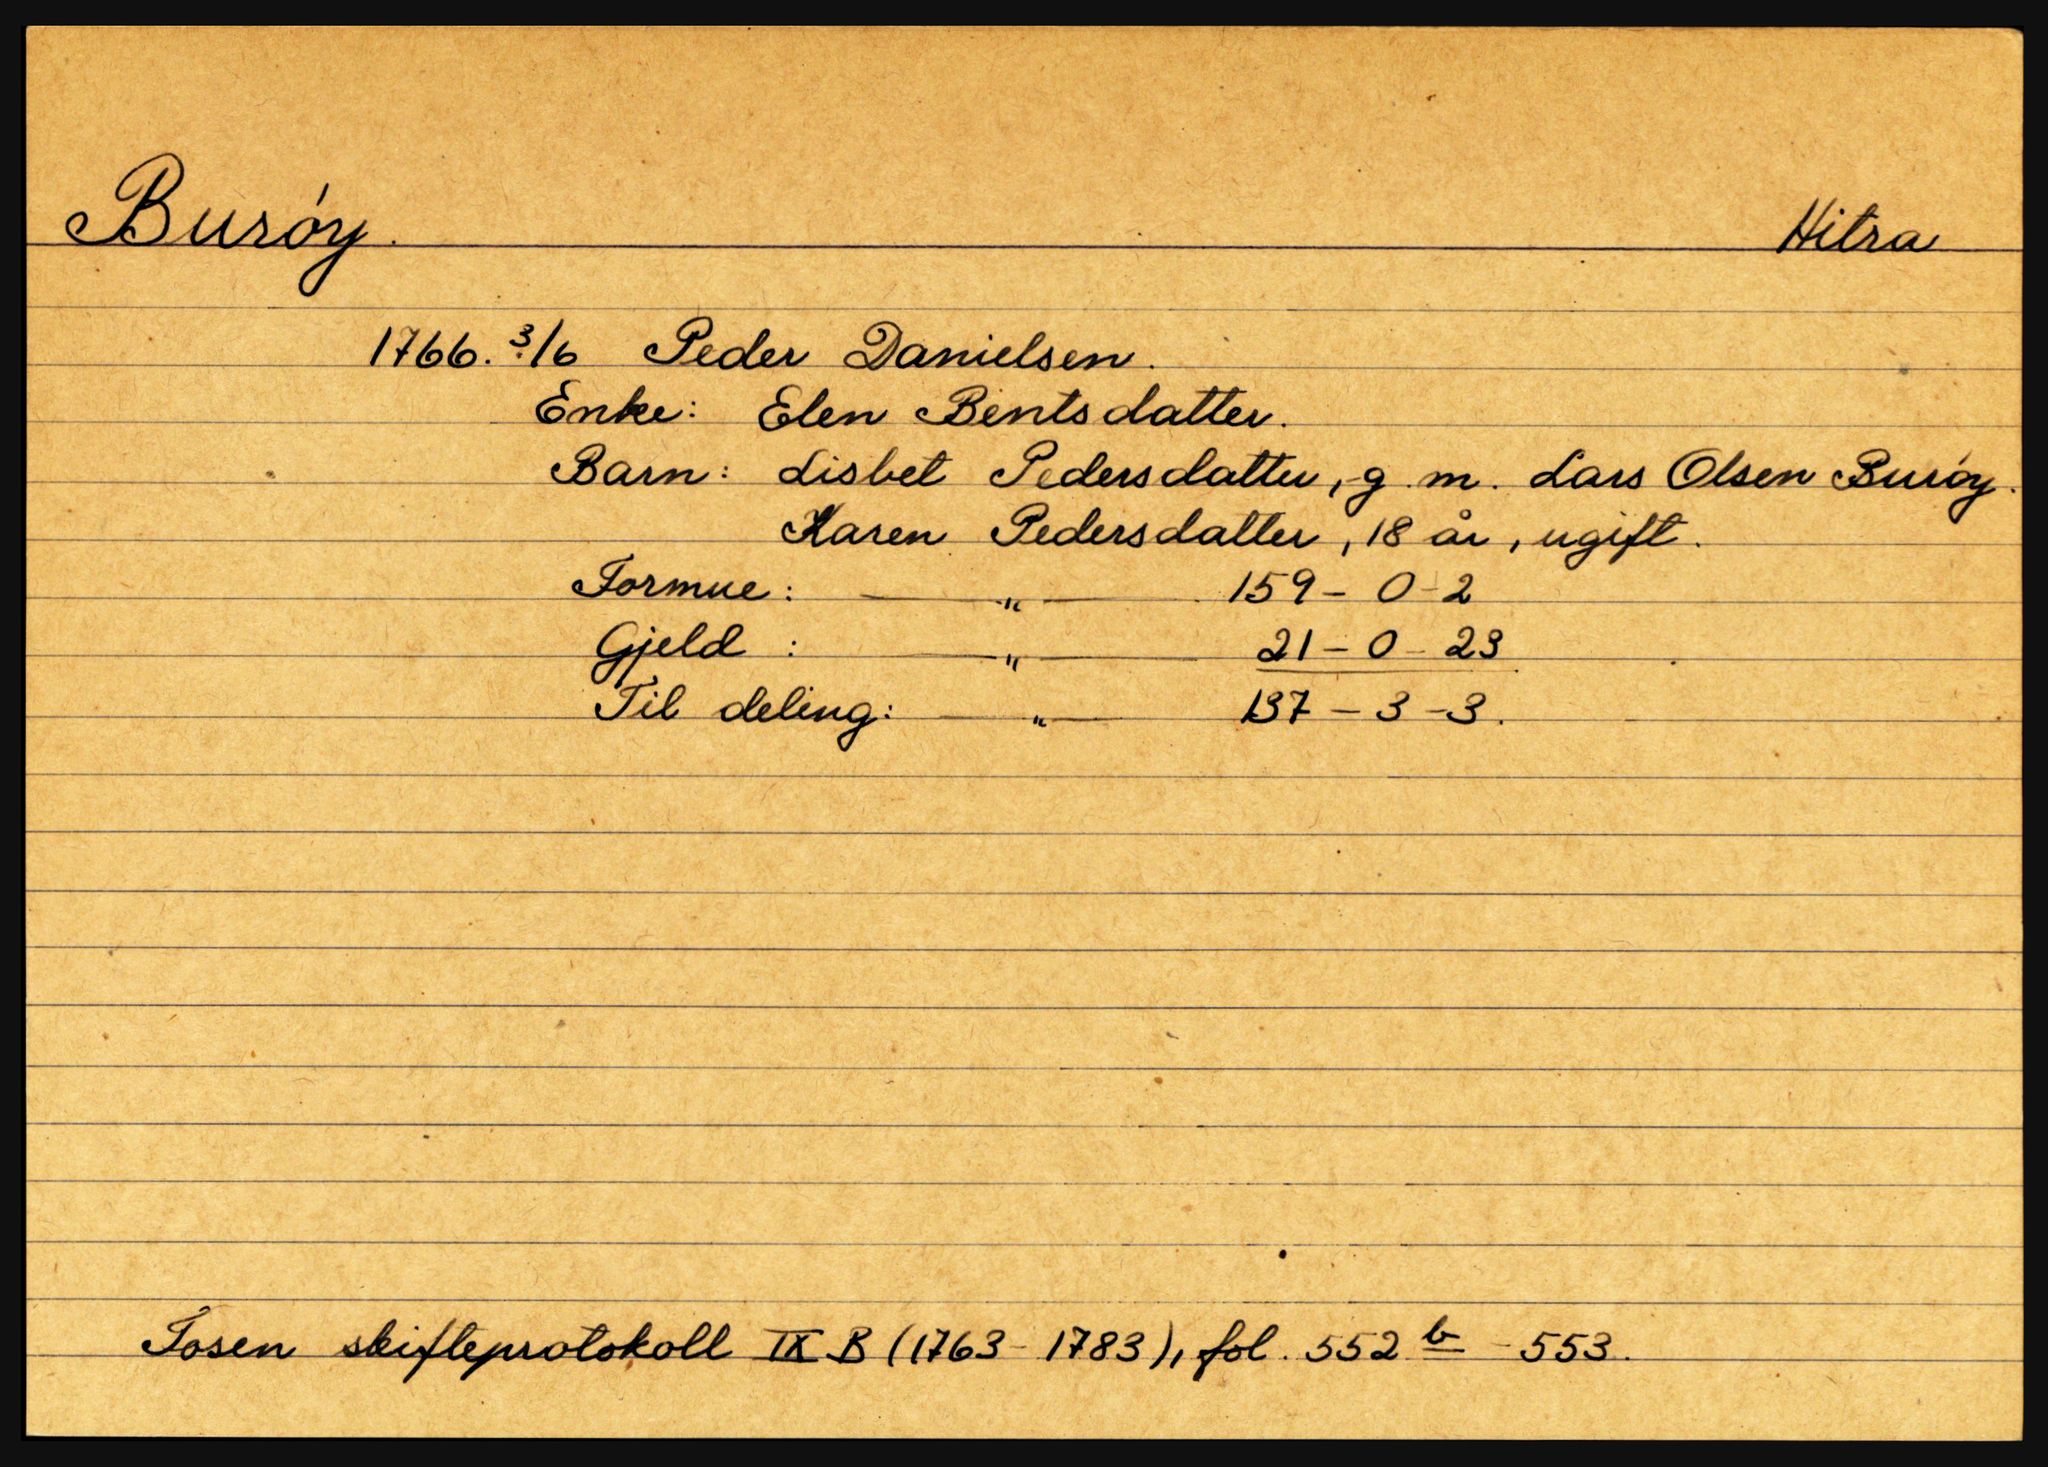 Burøy. Hitra
1766. 3/6 Peder Danielsen.
Enke: Elen Bentsdatter.
Barn: Lisbet Pedersdatter, g. m. Lars Olsen Burøy.
Karen Pedersdatter, 18 år, ugift.
Formue: — " — 159 - 0 - 2
Gjeld : — " — 21 - 0 - 23
Til deling: — " — 137 - 3 - 3.
Fosen skifteprotokoll IX B (1763 - 1783), fol. 552 b - 553.